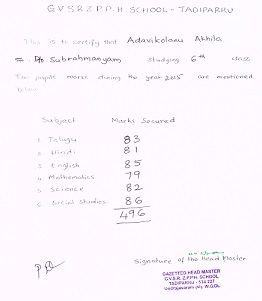 G.V.S.R.Z.P.P.H SCHOOL - TADIPARRU
This is to certify that Adavikolanu Akhila
D/o Subrahmanyam studying 6th class
The pupils marks during the year 2015 are mentioned
below
Subject Marks Secured
1 Telugu 83
2 Hindi 81
3 English 85
4 Mathematics 79
5 Science 82
6 Social Studies 86
496
Signature of the Head Master
GAZETTED HEAD MASTER
G.V.S.R. Z.P.P.H. SCHOOL
TADIPARRU - 534 227
Undrajavaram (M), W.G.Dt.